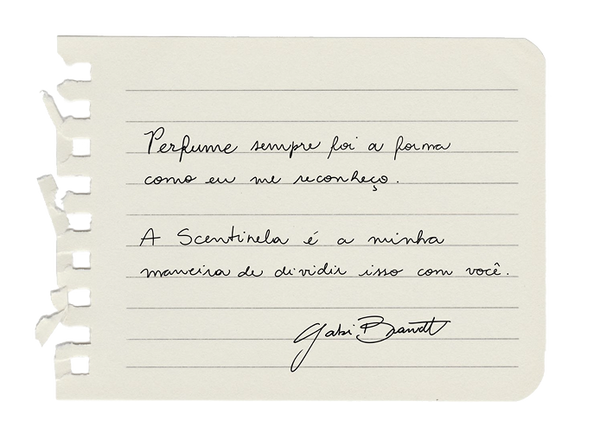 Perfume sempre foi a forma
como eu me reconheço.
A Scentinela é a minha
maneira de dividir isso com você.
Gabi Brandt